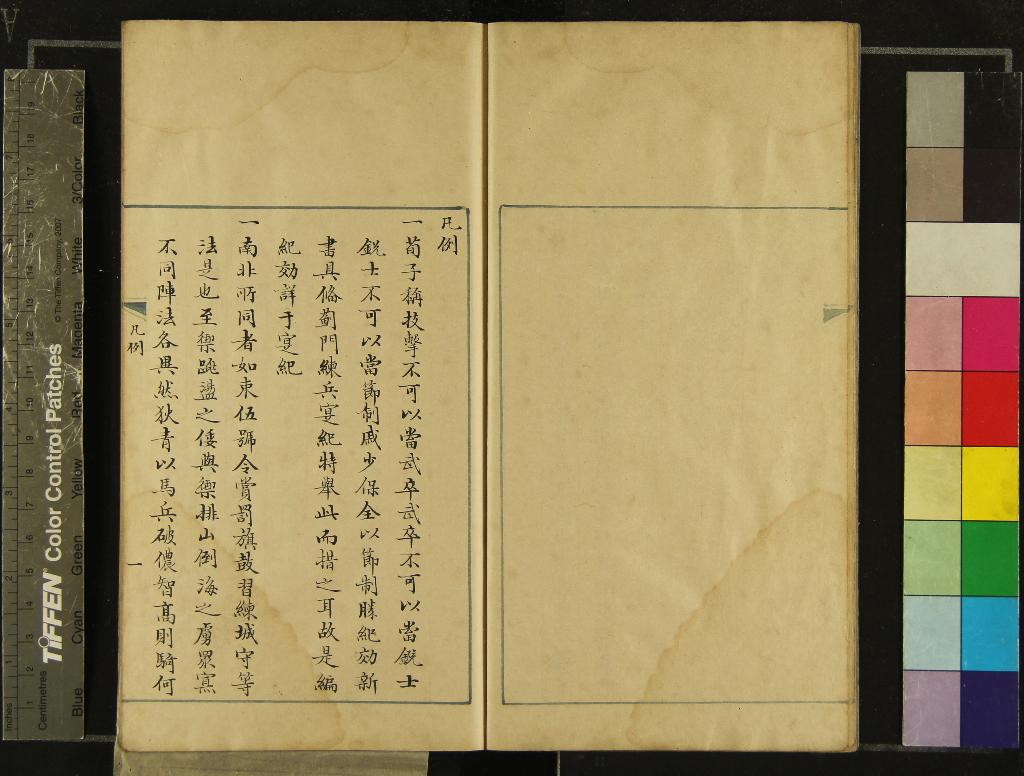 凡例
一荀子稱技擊不可以當武卒武卒不可以當銳士
銳士不可以當節制戚少保全以節制勝紀効新
書具俻薊門練兵寔紀特舉此而措之耳故是編
紀効詳于寔紀
一南北所同者如束伍號令賞罰旗鼓習練城守等
法是也至禦跳盪之倭與禦排山倒海之虜眾寡
不同陣法各異然狄青以馬兵破儂智高則騎何
凡例
一
TIFFEN Color Control Patches
© The Tiffen Company, 2007
Blue Cyan Green Yellow Red Magenta White 3/Color Black
Inches
Centimetres